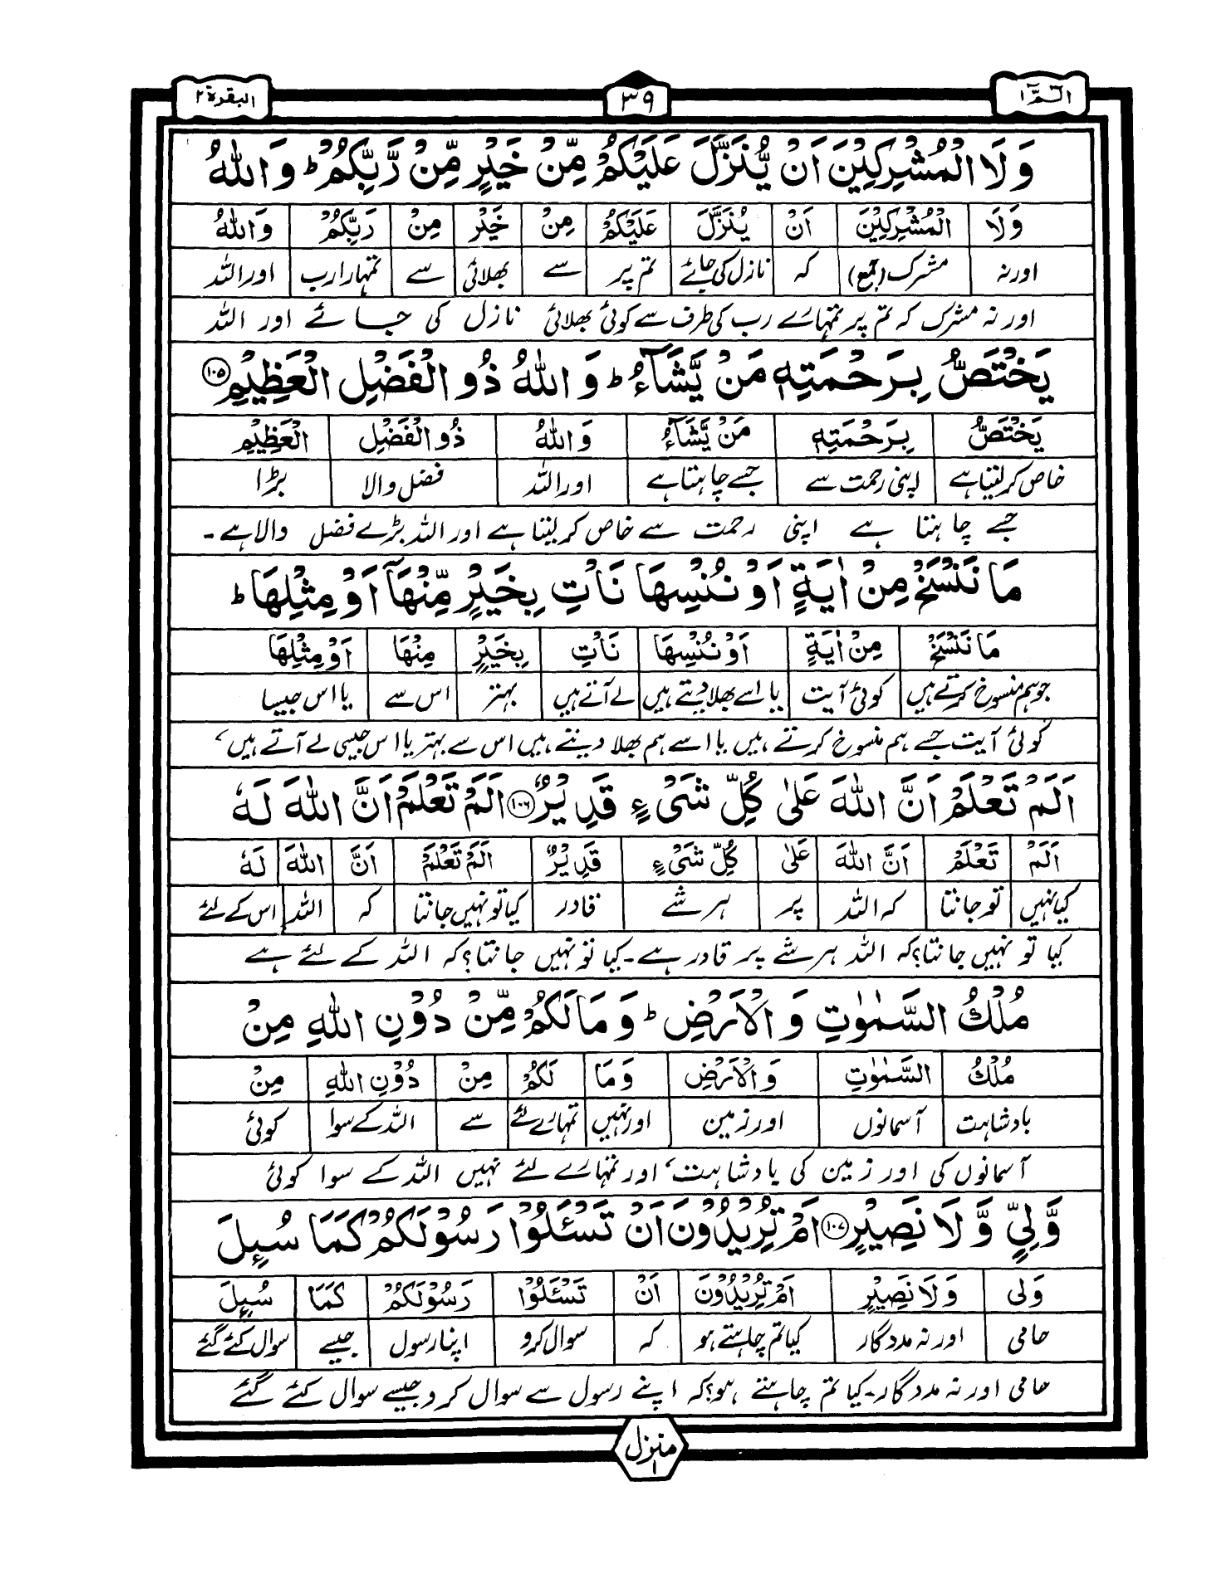 الٓمّٓ ١ ٣٩ البقرة ٢
وَلَا الْمُشْرِكِيْنَ اَنْ يُّنَزَّلَ عَلَيْكُمْ مِّنْ خَيْرٍ مِّنْ رَّبِّكُمْ ؕ وَاللّٰهُ
وَلَا الْمُشْرِكِيْنَ اَنْ يُنَزَّلَ عَلَيْكُمْ مِنْ خَيْرٍ مِنْ رَبِّكُمْ وَاللّٰهُ
اور نہ مشرک (جمع) کہ نازل کی جائے تم پر سے بھلائی سے تمہارا رب اور اللہ
اور نہ مشرک کہ تم پر تمہارے رب کی طرف سے کوئی بھلائی نازل کی جائے اور اللہ
يَخْتَصُّ بِرَحْمَتِهٖ مَنْ يَّشَآءُ ؕ وَاللّٰهُ ذُو الْفَضْلِ الْعَظِيْمِ ١٠٥
يَخْتَصُّ بِرَحْمَتِهٖ مَنْ يَّشَآءُ وَاللّٰهُ ذُو الْفَضْلِ الْعَظِيْمِ
خاص کر لیتا ہے اپنی رحمت سے جسے چاہتا ہے اور اللہ فضل والا بڑا
جسے چاہتا ہے اپنی رحمت سے خاص کر لیتا ہے اور اللہ بڑے فضل والا ہے ۔
مَا نَنْسَخْ مِنْ اٰيَةٍ اَوْ نُنْسِهَا نَاْتِ بِخَيْرٍ مِّنْهَآ اَوْ مِثْلِهَا ؕ
مَا نَنْسَخْ مِنْ اٰيَةٍ اَوْ نُنْسِهَا نَاْتِ بِخَيْرٍ مِنْهَا اَوْ مِثْلِهَا
جو ہم منسوخ کرتے ہیں کوئی آیت یا اسے بھلا دیتے ہیں لے آتے ہیں بہتر اس سے یا اس جیسا
کوئی آیت جسے ہم منسوخ کرتے ہیں یا اسے ہم بھلا دیتے ہیں اس سے بہتر یا اس جیسی لے آتے ہیں،
اَلَمْ تَعْلَمْ اَنَّ اللّٰهَ عَلٰى كُلِّ شَىْءٍ قَدِيْرٌ ١٠٦ اَلَمْ تَعْلَمْ اَنَّ اللّٰهَ لَهٗ
اَلَمْ تَعْلَمْ اَنَّ اللّٰهَ عَلٰى كُلِّ شَىْءٍ قَدِيْرٌ اَلَمْ تَعْلَمْ اَنَّ اللّٰهَ لَهٗ
کیا نہیں تو جانتا کہ اللہ پر ہر شے قادر کیا تو نہیں جانتا کہ اللہ اس کے لئے
کیا تو نہیں جانتا؟ کہ اللہ ہر شے پر قادر ہے۔ کیا تو نہیں جانتا؟ کہ اللہ کے لئے ہے
مُلْكُ السَّمٰوٰتِ وَالْاَرْضِ ؕ وَمَا لَكُمْ مِّنْ دُوْنِ اللّٰهِ مِنْ
مُلْكُ السَّمٰوٰتِ وَالْاَرْضِ وَمَا لَكُمْ مِنْ دُوْنِ اللّٰهِ مِنْ
بادشاہت آسمانوں اور زمین اور نہیں تمہارے لئے سے اللہ کے سوا کوئی
آسمانوں کی اور زمین کی بادشاہت، اور تمہارے لئے نہیں اللہ کے سوا کوئی
وَّلِيٍّ وَّلَا نَصِيْرٍ ١٠٧ اَمْ تُرِيْدُوْنَ اَنْ تَسْـَٔلُوْا رَسُوْلَكُمْ كَمَا سُىِٕلَ
وَلى وَلَا نَصِيْرٍ اَمْ تُرِيْدُوْنَ اَنْ تَسْـَٔلُوْا رَسُوْلَكُمْ كَمَا سُىِٕلَ
حامی اور نہ مددگار کیا تم چاہتے ہو کہ سوال کرو اپنا رسول جیسے سوال کئے گئے
حامی اور نہ مددگار۔ کیا تم چاہتے ہو؟ کہ اپنے رسول سے سوال کرو جیسے سوال کئے گئے
منزل ١